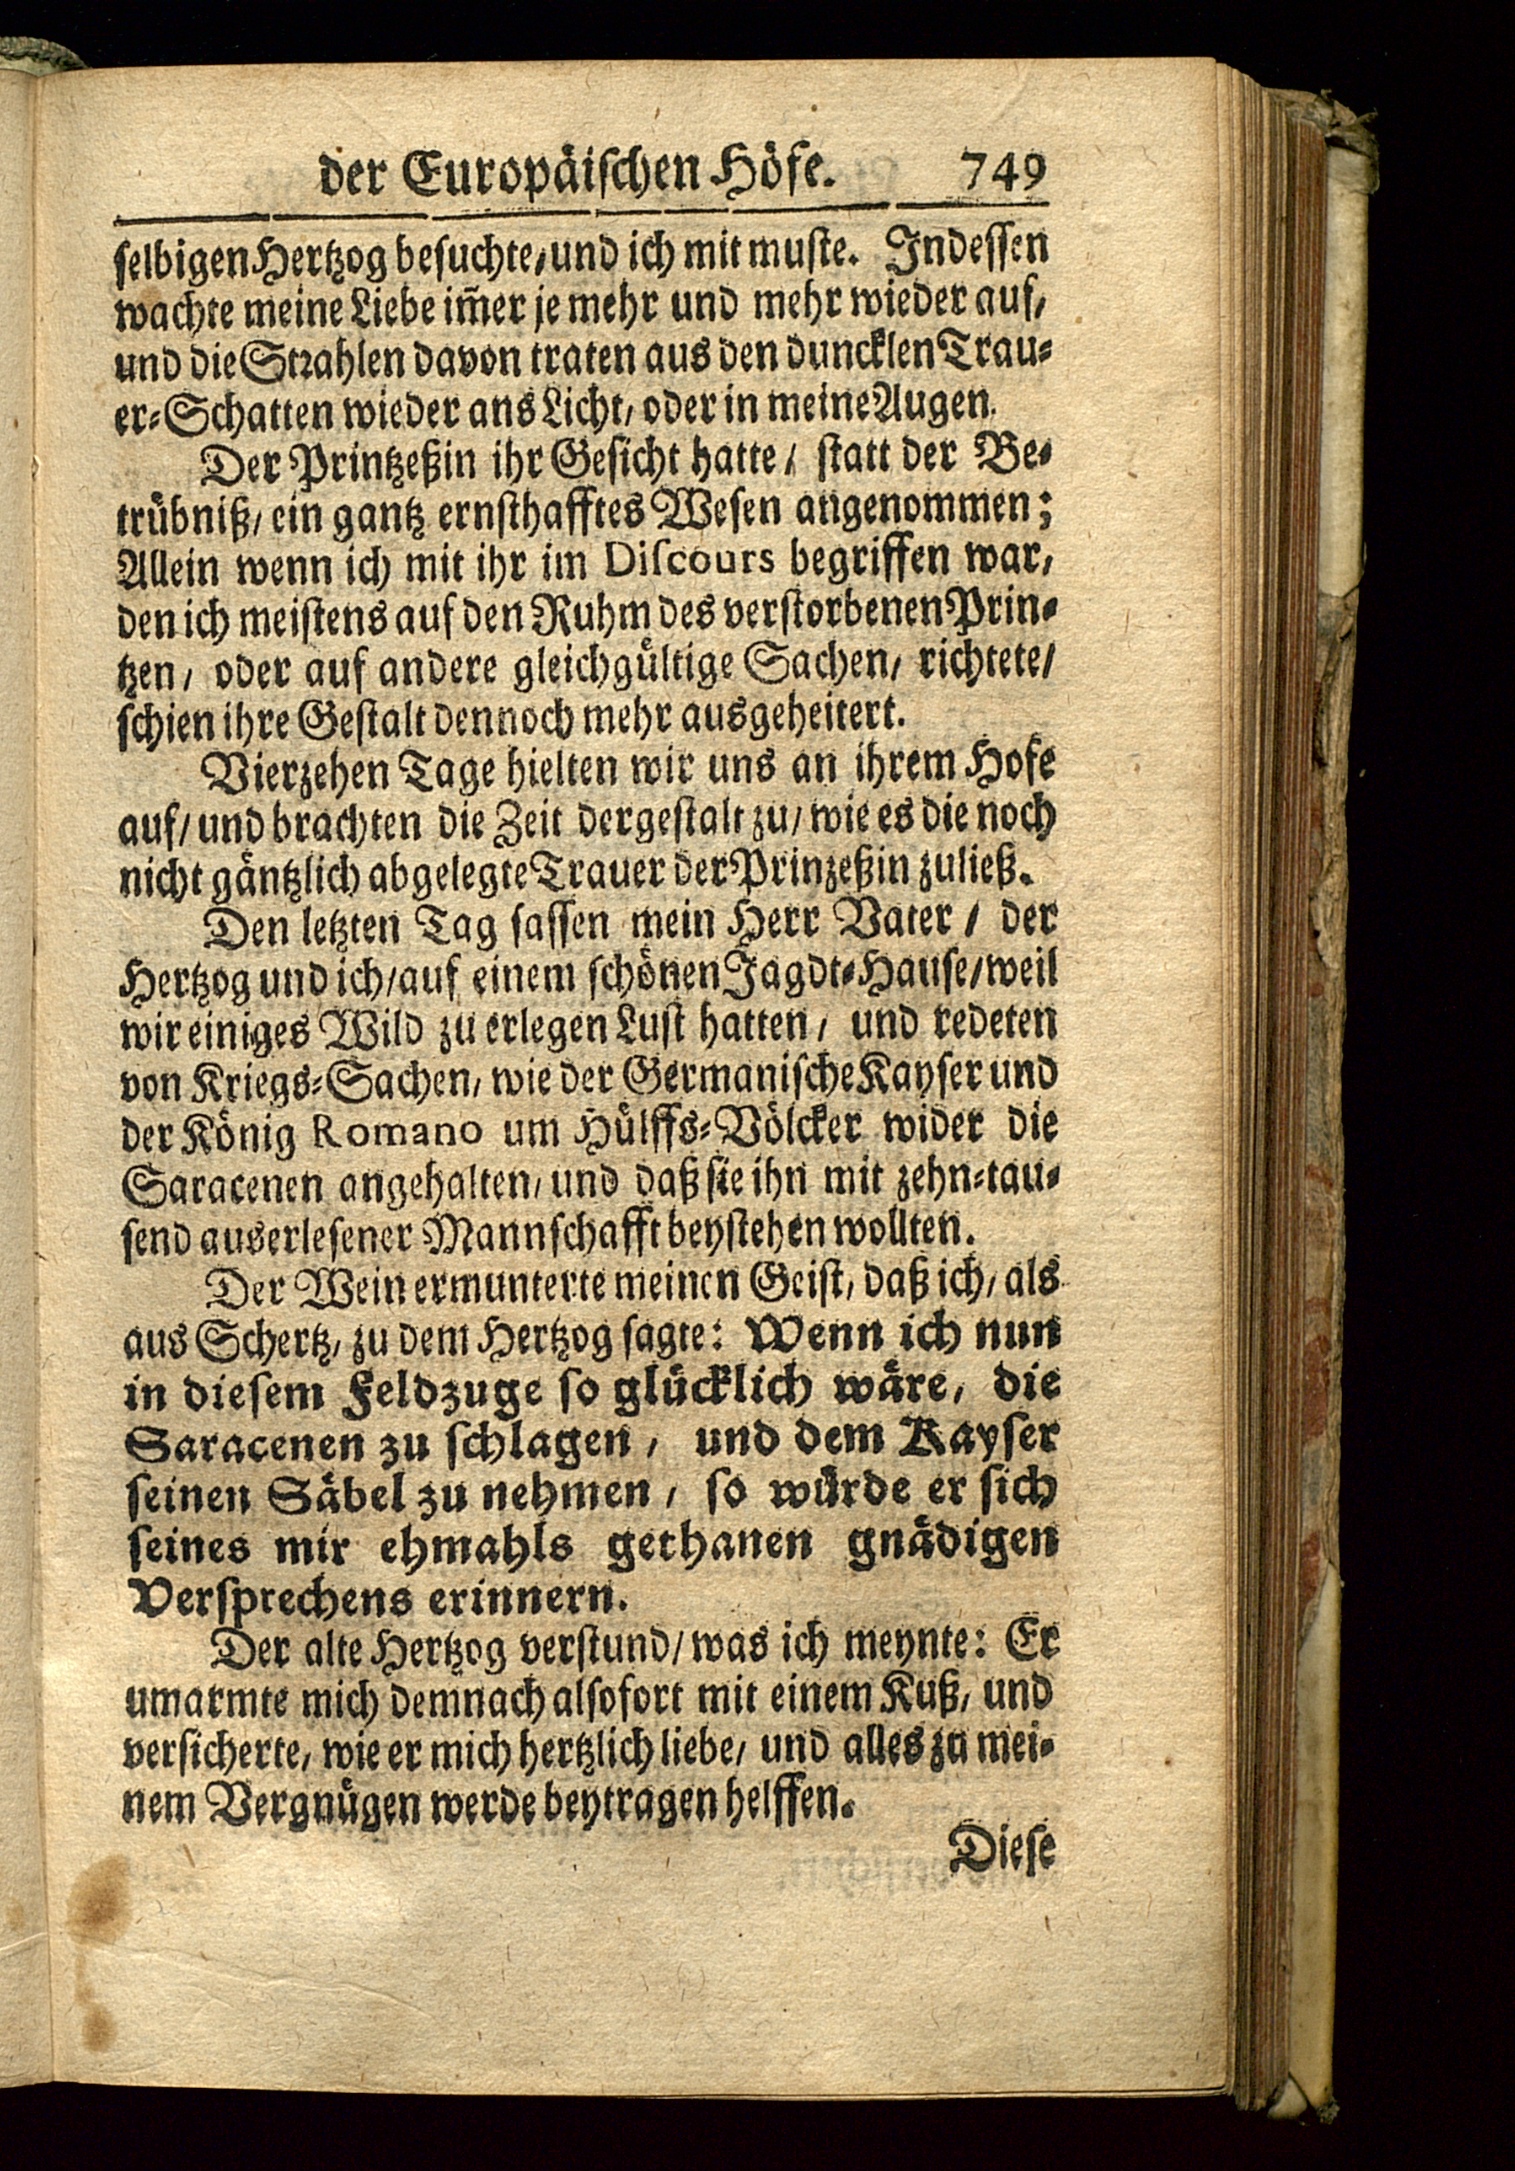 der Europäischen Höfe. 749
selbigen Hertzog besuchte/ und ich mit muste. Indessen
wachte meine Liebe im̃er je mehr und mehr wieder auf/
und die Strahlen davon traten aus den duncklen Trau-
er-Schatten wieder ans Licht/ oder in meine Augen.
Der Printzeßin ihr Gesicht hatte/ statt der Be-
trübniß/ ein gantz ernsthafftes Wesen angenommen;
Allein wenn ich mit ihr im Discours begriffen war/
den ich meistens auf den Ruhm des verstorbenen Prin-
tzen/ oder auf andere gleichgültige Sachen/ richtete/
schien ihre Gestalt dennoch mehr ausgeheitert.
Vierzehen Tage hielten wir uns an ihrem Hofe
auf/ und brachten die Zeit dergestalt zu/ wie es die noch
nicht gäntzlich abgelegte Trauer der Prinzeßin zuließ.
Den letzten Tag sassen mein Herr Vater/ der
Hertzog und ich/ auf einem schönen Jagdt-Hause/ weil
wir einiges Wild zu erlegen Lust hatten/ und redeten
von Kriegs-Sachen/ wie der Germanische Kayser und
der König Romano um Hülffs-Völcker wider die
Saracenen angehalten/ und daß sie ihn mit zehn-tau-
send auserlesener Mannschafft beystehen wollten.
Der Wein ermunterte meinen Geist/ daß ich/ als
aus Schertz/ zu dem Hertzog sagte: Wenn ich nun
in diesem Feldzuge so glücklich wäre/ die
Saracenen zu schlagen/ und dem Kayser
seinen Säbel zu nehmen/ so würde er sich
seines mir ehmahls gethanen gnädigen
Versprechens erinnern.
Der alte Hertzog verstund/ was ich meynte: Er
umarmte mich demnach alsofort mit einem Kuß/ und
versicherte/ wie er mich hertzlich liebe/ und alles zu mei-
nem Vergnügen werde beytragen helffen.
Diese